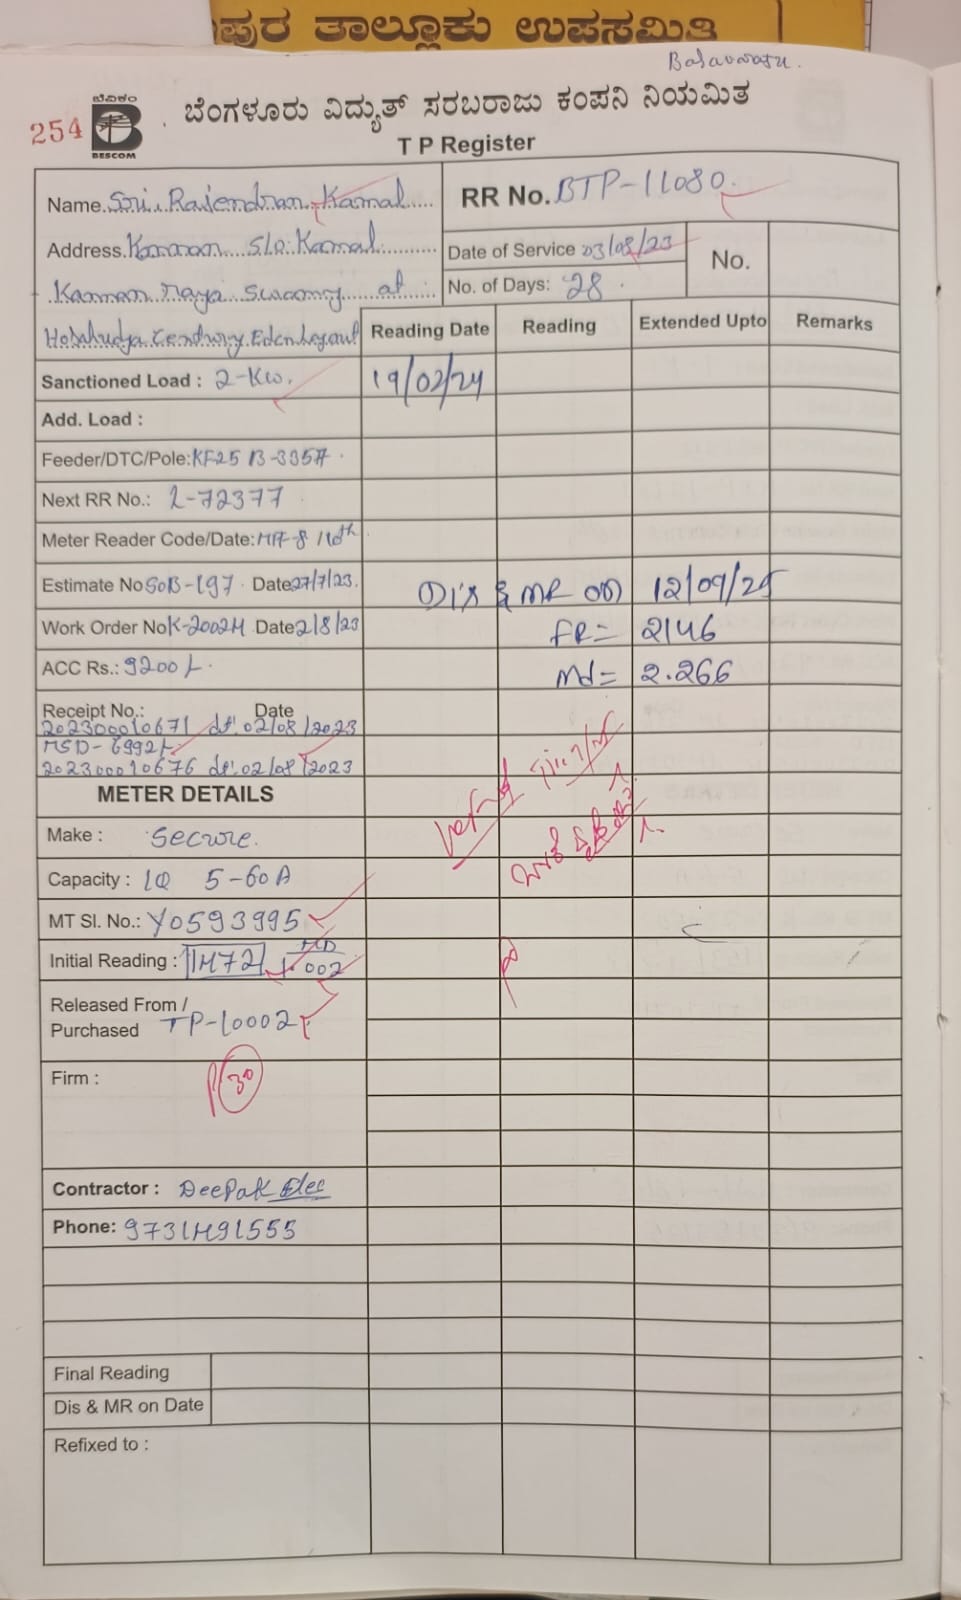 ಪುರ ತಾಲ್ಲೂಕು ಉಪಸಮಿತಿ
254
ಬೆವಿಕಂ
BESCOM
ಬೆಂಗಳೂರು ವಿದ್ಯುತ್ ಸರಬರಾಜು ಕಂಪನಿ ನಿಯಮಿತ
T P Register
Name. Sri. Rajendran Kamal
RR No. BTP-11080
Address. Kannan S/o. Kamal
Date of Service 03/08/23
No.
Kannan raya Swamy at
No. of Days: 28
Century Eden Layout
Reading Date Reading Extended Upto Remarks
Sanctioned Load : 2-Kw.
19/02/24
Add. Load :
Feeder/DTC/Pole:
Next RR No.: L-72377
Meter Reader Code/Date:
Estimate No SoB-197 Date 27/7/23.
Dis & MR on 12/09/25
Work Order No Date 2/8/23
FR= 2146
ACC Rs.: 9200/-
Md= 2.266
Receipt No.: Date
202300010671 dt: 02/08/2023
MSD- 6992/-
202300010676 dt: 02/08/2023
METER DETAILS
Make : Secure.
Capacity : 1Φ 5-60A
MT Sl. No.: Y0593995
Initial Reading : MD
Released From /
Purchased TP-10002
Firm :
30
Contractor : Deepak Elec
Phone: 9731491555
Final Reading
Dis & MR on Date
Refixed to :